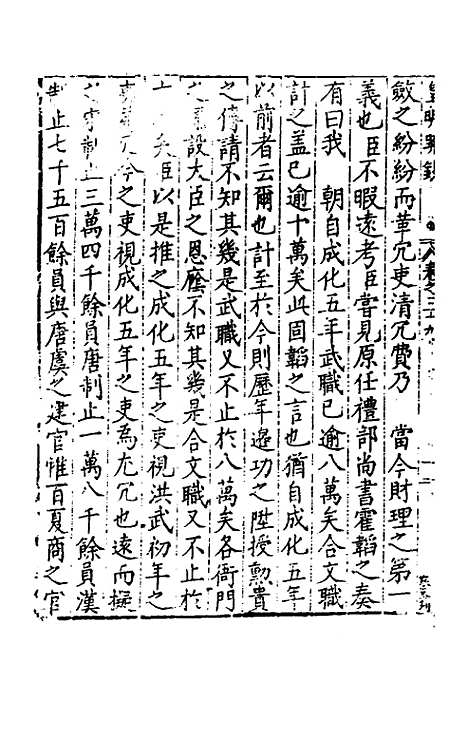 斂之紛紛而革冗吏清冗費乃　當今財理之第一
義也臣不暇遠考臣嘗見原任禮部尚書霍韜之奏
有曰我　朝自成化五年武職已逾八萬矣合文職
計之蓋已逾十萬矣此固韜之言也猶自成化五年
以前者云爾也計至於今則歷年邊功之陞授勳貴
之傳請不知其幾是武職又不止於八萬矣各衙門
設大臣之恩廕不知其幾是合文職又不止於
矣臣以是推之成化五年之吏視洪武初年之
今之吏視成化五年之吏為尤冗也遠而擬
制止三萬四千餘員唐制止一萬八千餘員漢
制止七千五百餘員與唐虞之建官惟百夏商之官